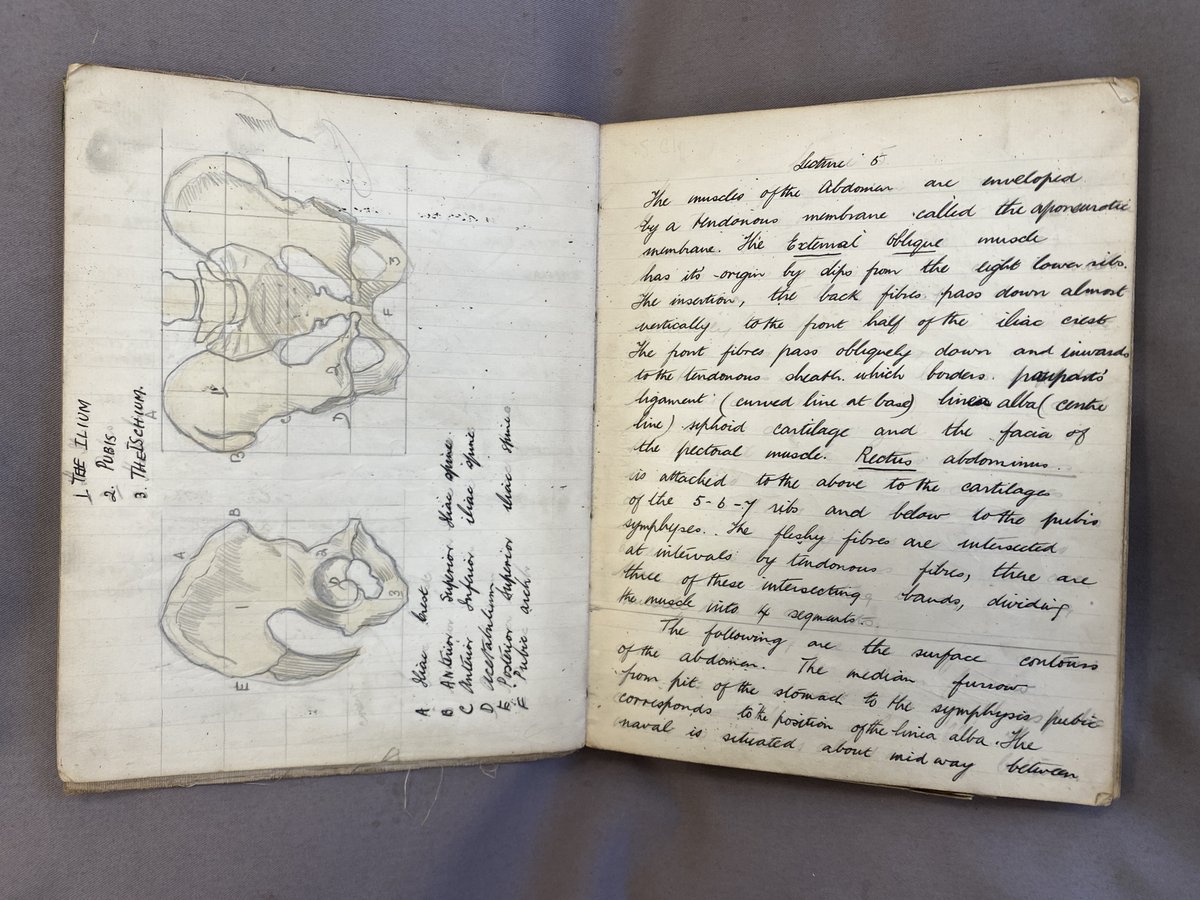 1. THE ILIUM
2. PUBIS
3. THE ISCHIUM.
A Iliac Crest
B Anterior Superior Iliac spine.
C Anterior Inferior iliac spine.
D Acetabulum
E Posterior Superior iliac spine
F Pubic arch
A
B
C
D
F
1
2
3
A
B
E
1
2
3
D
Lecture 6
The muscles of the Abdomen are enveloped
by a tendonous membrane called the aponeurotic
membrane. The External Oblique muscle
has it's origin by dips from the eight lower ribs.
The insertion, the back fibres pass down almost
vertically to the front half of the iliac crest
The front fibres pass obliquely down and inwards
to the tendonous sheath which borders
ligament (curved line at base) linea alba (centre
line) siphoid cartilage and the facia of
the pectoral muscle. Rectus abdominus.
is attached to the above to the cartilages
of the 5-6-7 ribs and below to the pubis
symphyses. The fleshy fibres are intersected
at intervals by tendonous fibres, there are
three of these intersecting bands, dividing
the muscle into 4 segments.
The following are the surface contours
of the abdomen. The median furrow
from pit of the stomach to the symphysis pubic
corresponds to the position of the linea alba. The
naval is situated about mid way between